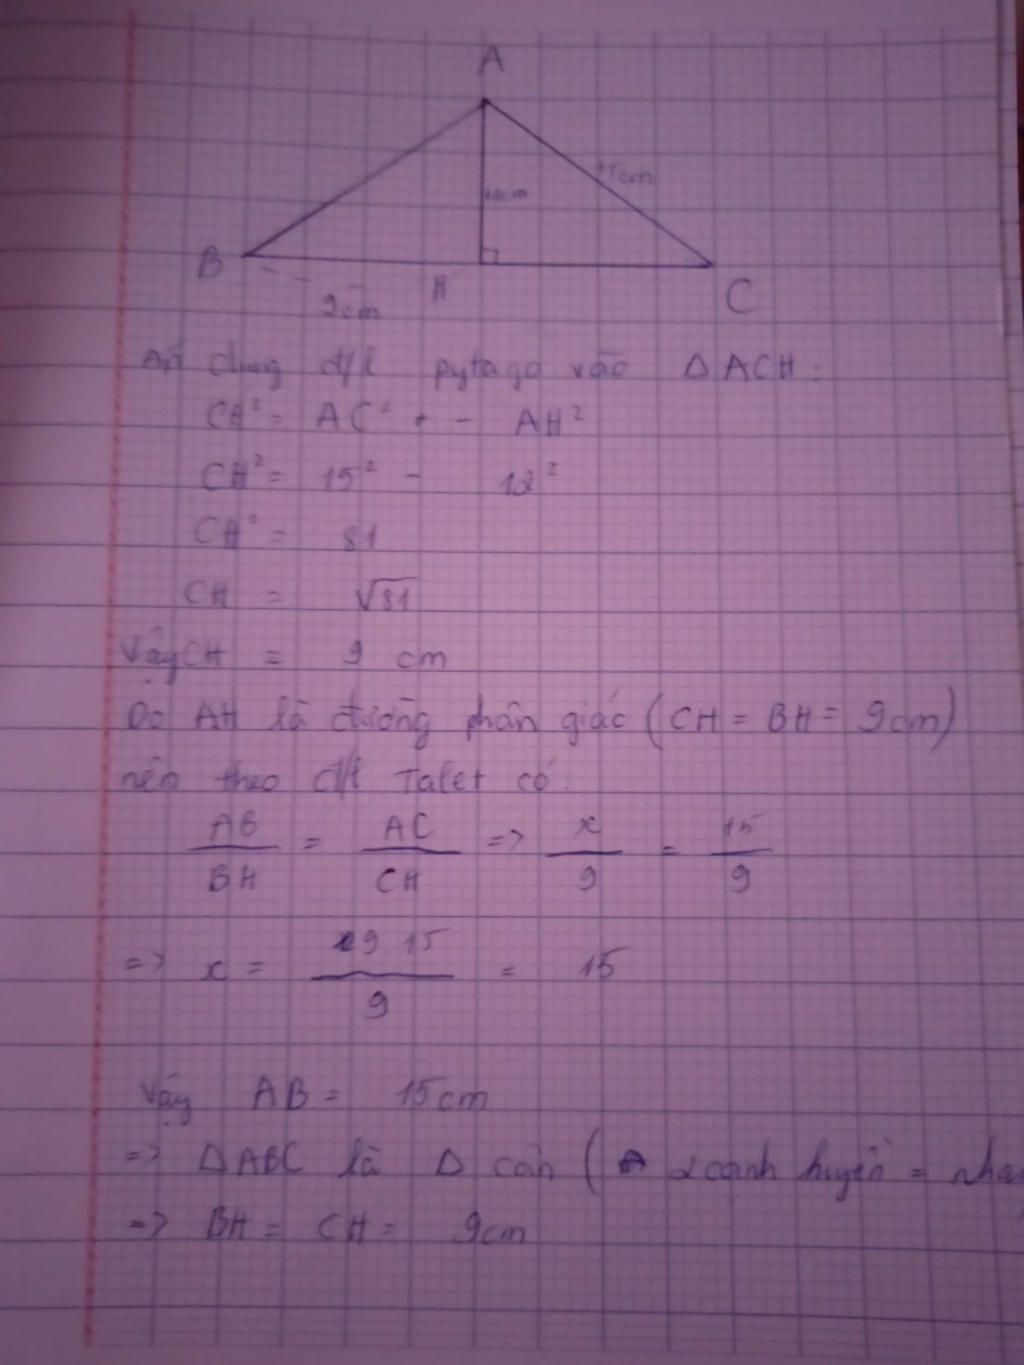 A
15cm
12cm
B
H
C
9cm
Áp dụng đ/l pytago vào Δ ACH:
CH² = AC² + - AH²
CH² = 15² - 12²
CH² = 81
CH = √81
Vậy CH = 9 cm
Do AH là đường phân giác (CH = BH = 9cm)
nên theo đ/l Talet có:
AB/BH = AC/CH => x/9 = 15/9
=> x = 9 15/9 = 15
Vậy AB = 15cm
=> ΔABC là Δ cân ( 2 cạnh huyền = nhau
=> BH = CH = 9cm